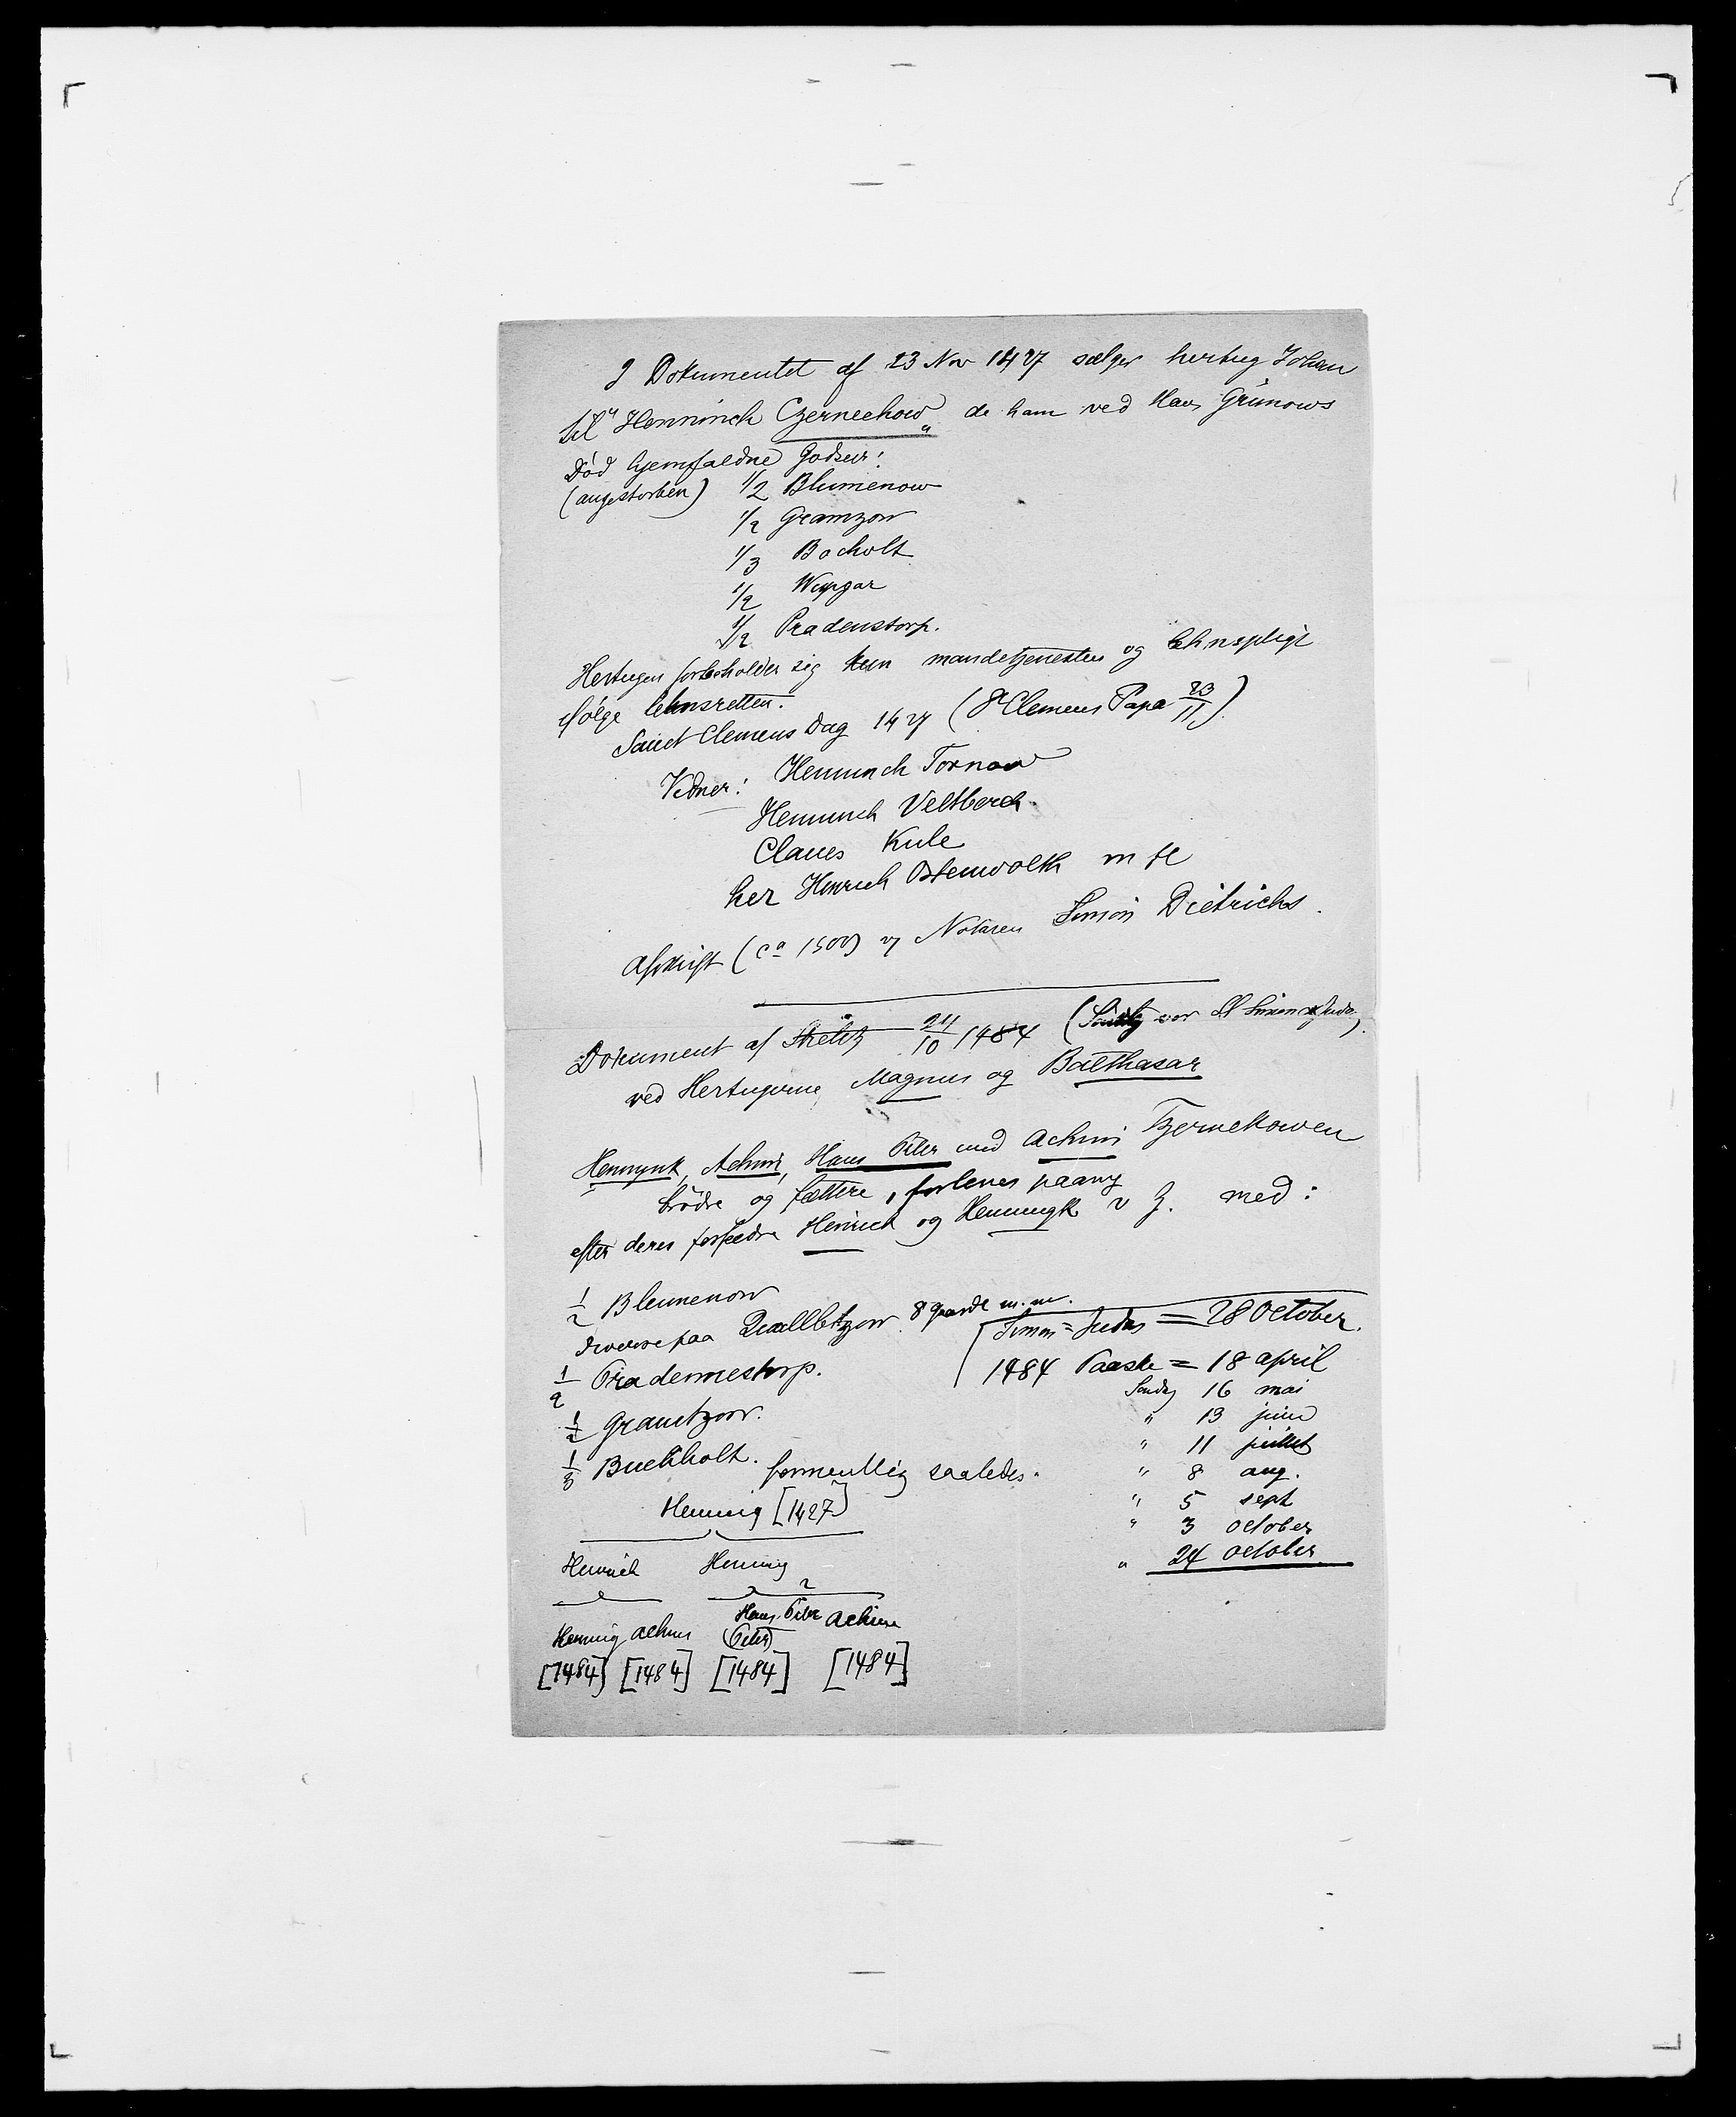 I Dokumentet af 23 Nov 1427 sælger hertug Johan
til "Henninch Czerneekow" de ham ved Hans Grünows
Død hjemfaldne Godser:
(angestorben) 1/2 Blumenow
1/2 Gramzow
1/3 Bocholt
1/2
1/2 Pradenstorp.
Hertugen forbeholder sig kun mandetjenesten og lehnspligt
ifølge lehnsretten.
Sanct Clemens Dag 1427 (St Clemens Papa 23/11).
Vidner: Henninch Tornow
Henninch Veltberch
Claues Kule
her Hinrich Ostenwolth m fl
Afskrift (ca 1500) af Notaren Simon Dietrichs.
Dokument af Streltz 24/10 1484 (Søndag vor St Simon & Juda).
ved Hertugerne Magnus og Balthasar
Hennynk, Achim, Hans Peter und Achim Tzernekowen
brødre og fættere, forlenes paany
efter deres forfædre Hinrich og Henningk v Z. med:
1/2 Blumenow
diverse paa Quallbitzow 8 gaarde m.m.
1/2 Pradennestorp.
1/2 Grantzow.
1/3 Buchholt. formentlig saaledes.
Simon = Judas = 28 October.
1484 Paaske = 18 april
Søndag 16 mai
" 13 juni
" 11 juillet
" 8 aug.
" 5 sept
" 3 october
" 24 october
Hennig [1427]
Heinrich Henning
Hennig achim Hans Peter Achim
(Peter)
[1484] [1484] [1484] [1484]